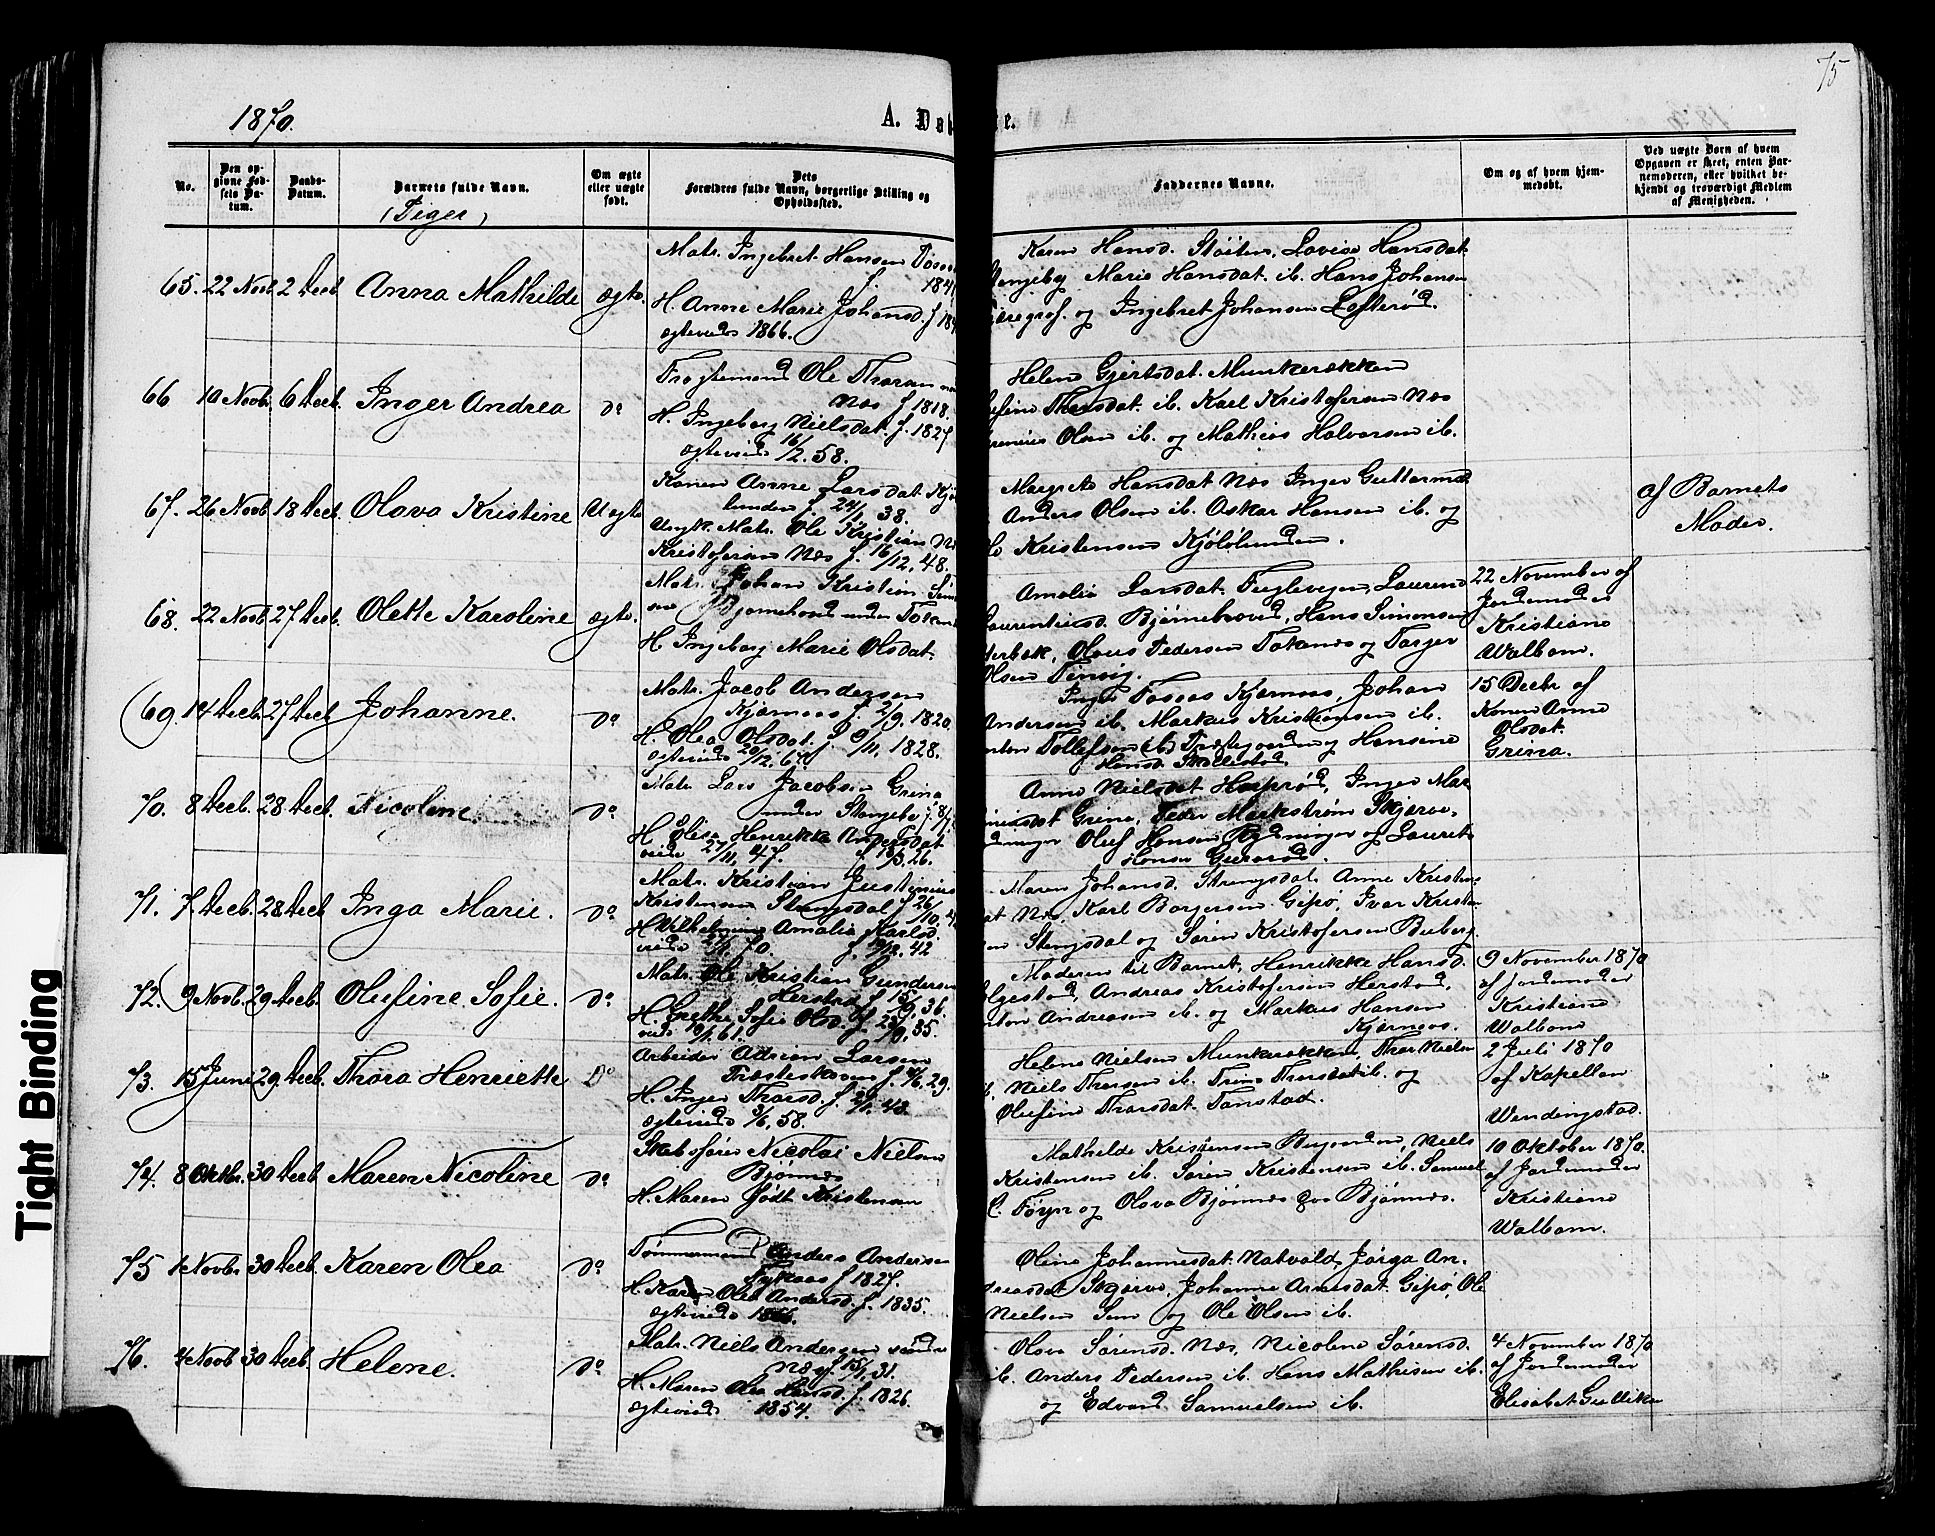 75
1870.
A. Døbte.
No.
Den opgivne Fødsels Datum.
Daabs-Datum.
Barnets fulde Navn.
(Piger)
Om ægte eller uægte født.
Dets Forældres fulde Navn, borgerlige Stilling og Opholdssted.
Faddernes Navne.
Om og af hvem hjemmedøbt.
Ved uægte Børn af hvem Opgaven er skeet, enten Barnemoderen, eller hvilket bekjendt og troværdigt Medlem af Menigheden.
65. 22 Novb 2 Decb Anna Mathilde ægte.
Matr. Ingebret Hansen
H. Anne Marie Johansd. f.
ægteviede 1866.
Karen Hansd. Støiten, Lovise Hansdat.
Marie Hansdat. ib. Hans Johansen
og Ingebret Johansen Lofterød.
66 10 Novb. 6 Decb. Inger Andrea Do
Ole Thoresen
Næs f. 1818.
H. Ingeborg Nielsdat. f. 1827
ægteviede 16/2. 58.
Helene Gjertsdat. Munkerækken
Thorsdat. ib. Karl Kristofersen Næs
Olsen ib. og Mathias Halvorsen ib.
67. 26 Novb 18 Decb. Olava Kristine Uægte
Konen Anne Larsdat
f. 24/1 38.
Ungk. Matr. Ole Kristian
Kristofersen Næs f. 16/12. 48.
Hansdat Næs Inger Guttormsd.
Anders Olsen ib. Oskar Hansen ib. og
Kristensen Kjølølunden.
af Barnets
Moder.
68. 22 Novb 27 Decb. Olette Karoline ægte.
Matr. Johan Kristian
Bjørnehoved under
H. Ingeborg Marie Olsdat.
Amalie Larsdat. Fuglevigen, Laurense
Laurentiusd. Bjørnehoved, Hans Simonsen
Olaus Pedersen Toknæs og Torger
Olsen
22 November af
Jordemoder
Kristiane
Walbom.
69. 14 Decb. 27 Decb Johanne. Do
Matr. Jacob Andersen
Kjærnaas f. 2/9. 1820.
H. Olea Olsdat. f. 9/11. 1828.
ægteviede 20/12. 67.
Inger Kjærnaas, Johan
Andersen ib. Markus Kristiansen ib.
Tollefsen ib. og Hansine
15 Decbr af
Konen Anne
Olsdat.
Grima.
70. 8 Decb. 28 Decb. Nicoline. Do
Matr. Lars Jacobsen Grima
under Stangeby f. 8/
H. Elisa Henrikke Andersdat
viede 27/11. 47. f. 18/3. 26.
Anne Nielsdat Haprød, Inger
Grima, Peder Markstrøm Skjærve,
Oluf Hansen Rydningen og Laurits
Hansen
71. 7. Decb. 28 Decb Inga Marie. Do
Matr. Kristian Justinius
Kristensen Strengsdal f. 26/10.
H. Vilhelmine Amalia Karlsd.
viede 70 f. 42
Maren Johansd. Strengsdal, Anne
Næs, Karl Borgersen Gipø, Ivar
Stengsdal og Søren Kristofersen Buberg.
72. 9 Novb. 29 Decb. Olufine Sofie. Do
Matr. Ole Kristian Gundersen
Herstad f. 15/9. 36.
H. Grethe Sofie Olsd. f. 35
viede 19/1. 61.
Moderen til Barnet, Henrikke Hansd.
Andreas Kristofersen Herstad,
Andreasen ib. og Markus Hansen
Kjærnaas.
9 November 1870
af Jordemoder
Kristiane
Walbom
73. 15 Juni 29 Decb. Thora Henriette Do
Arbeider Adrian Larsen
Træsteskoven f. 4/6. 29.
H. Inger Thorsd. f. 43.
ægteviede 3/6. 58.
Helene Nielsen Munkerækken, Thor Nielsen
Niels Thorsen ib. Trine Thorsdat ib. og
Olufine Thorsdat. Tanstad.
2 Juli 1870
af Kapellan
Wendingstad.
74. 8 Oktbr. 30 Decb Maren Nicoline Do
Skibsfører Nicolai Nielsen
Bjønnes
H. Maren født Kristensen
Mathilde Kristensen Bugaarden, Niels
Kristensen ib. Søren Kristensen ib. Samuel
C. Føyn og Olava Bjønnes Bjønnes.
10 Oktober 1870.
af Jordemoder
Kristiane
Walbom.
75 1 Novbr. 30 Decb. Karen Olea Do
Tømmermand Anders Andersen
f. 1827.
H. Karen Olea Andersd. f. 1835.
ægteviede 1866.
Oline Johannesdat. Natvald, Jørga
Skjærve, Johanne Arnesdat. Gipø, Ole
Nielsen Sem og Ole Olsen ib.
76. 4 Novb 30 Decb. Helene. Do
Matr. Niels Andersen
Næs f. 15/1. 31.
H. Maren Olea Hansd. f. 1826.
ægteviede 1854.
Olava Sørensd. Næs, Nicoline Sørensd.
ib. Anders Pedersen ib. Hans Mathisen ib.
og Edvard Samuelsen ib.
4 November 1870
af Jordemoder
Elisabet Gulliksen
Tight Binding